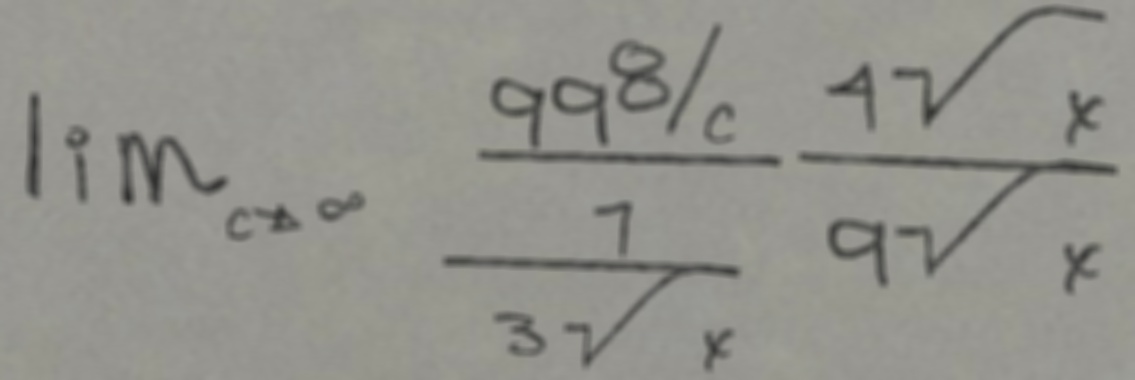 \lim_{c \to \infty} \frac{\frac{998/c}{7}}{3\sqrt{x}} \frac{4\sqrt{x}}{9\sqrt{x}}